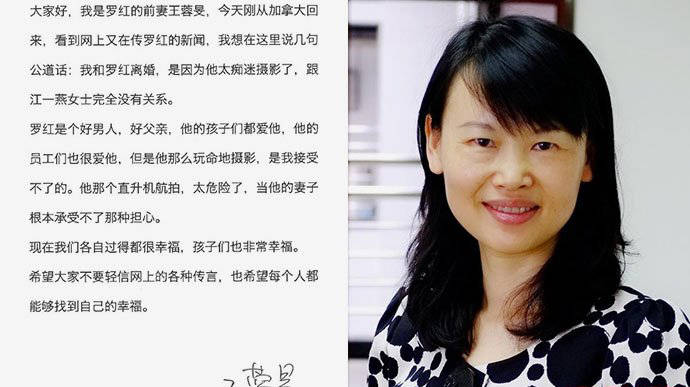 大家好，我是罗红的前妻王蓉旻，今天刚从加拿大回
来，看到网上又在传罗红的新闻，我想在这里说几句
公道话：我和罗红离婚，是因为他太痴迷摄影了，跟
江一燕女士完全没有关系。
罗红是个好男人，好父亲，他的孩子们都爱他，他的
员工们也很爱他，但是他那么玩命地摄影，是我接受
不了的。他那个直升机航拍，太危险了，当他的妻子
根本承受不了那种担心。
现在我们各自过得都很幸福，孩子们也非常幸福。
希望大家不要轻信网上的各种传言，也希望每个人都
能够找到自己的幸福。